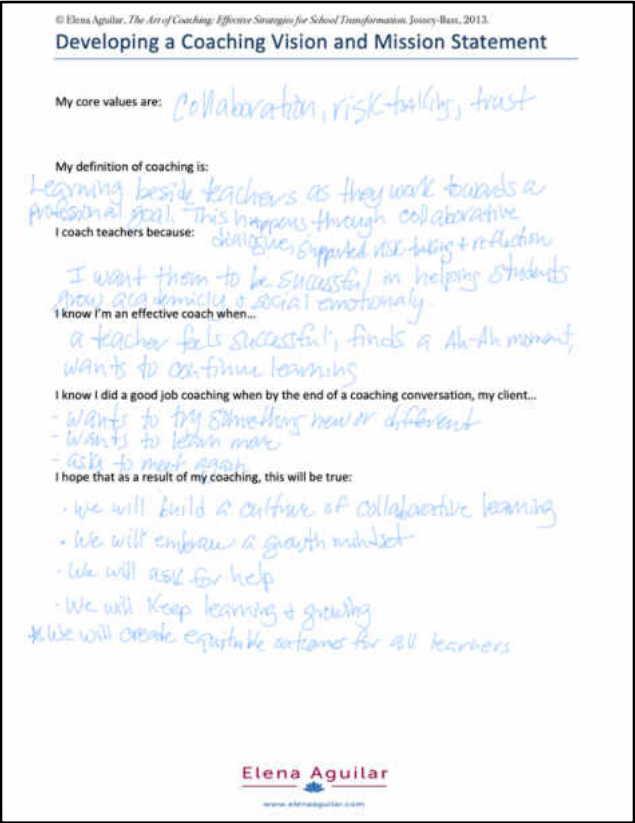 © Elena Aguilar, The Art of Coaching: Effective Strategies for School Transformation. Jossey-Bass, 2013.
Developing a Coaching Vision and Mission Statement
My core values are: Collaboration, risk-taking, trust
My definition of coaching is:
Learning beside teachers as they work towards a
profesional goal. This happens through collaborative
I coach teachers because: dialogue, supported risk-taking + reflection
I want them to be successful in helping students
grow academicly & social emotionaly.
I know I'm an effective coach when...
a teacher feels successful, finds a Ah-Ah moment,
wants to continue learning
I know I did a good job coaching when by the end of a coaching conversation, my client...
- wants to try something new or different
- wants to learn more
- asks to meet again
I hope that as a result of my coaching, this will be true:
• We will build a culture of collaborative learning
• We will embrace a growth mindset
• We will ask for help
• We will keep learning + growing
* We will create equitable outcomes for all learners
Elena Aguilar
www.elenaaguilar.com